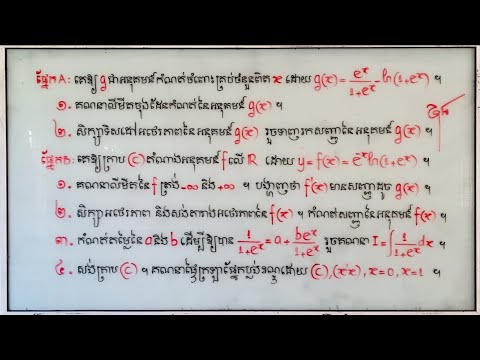 ផ្នែកA: គេឱ្យ g ជាអនុគមន៍កំណត់ចំពោះគ្រប់ចំនួនពិត x ដោយ g(x) = e^x/(1+e^x) - ln(1+e^x) ។
១. គណនាលីមីតចុងដែនកំណត់នៃអនុគមន៍ g(x) ។
២. សិក្សាទិសដៅអថេរភាពនៃអនុគមន៍ g(x) រួចទាញរកសញ្ញានៃអនុគមន៍ g(x) ។
ផ្នែកB: គេឱ្យក្រាប (C) តំណាងអនុគមន៍ f លើ ℝ ដោយ y = f(x) = e^-x ln(1+e^x) ។
១. គណនាលីមីតនៃ f ត្រង់ -∞ និង +∞ ។ បង្ហាញថា f'(x) មានសញ្ញាដូច g(x) ។
២. សិក្សាអថេរភាព និងសង់តារាងអថេរភាពនៃ f(x) ។ កំណត់សញ្ញានៃអនុគមន៍ f(x) ។
៣. កំណត់តម្លៃនៃ a និង b ដើម្បីឱ្យបាន 1/(1+e^x) = a + be^x/(1+e^x) រួចគណនា I = ∫ 1/(1+e^x) dx ។
៤. សង់ក្រាប (C) ។ គណនាផ្ទៃក្រឡាផ្នែកប្លង់ខណ្ឌដោយ (C), (x'x), x=0, x=1 ។